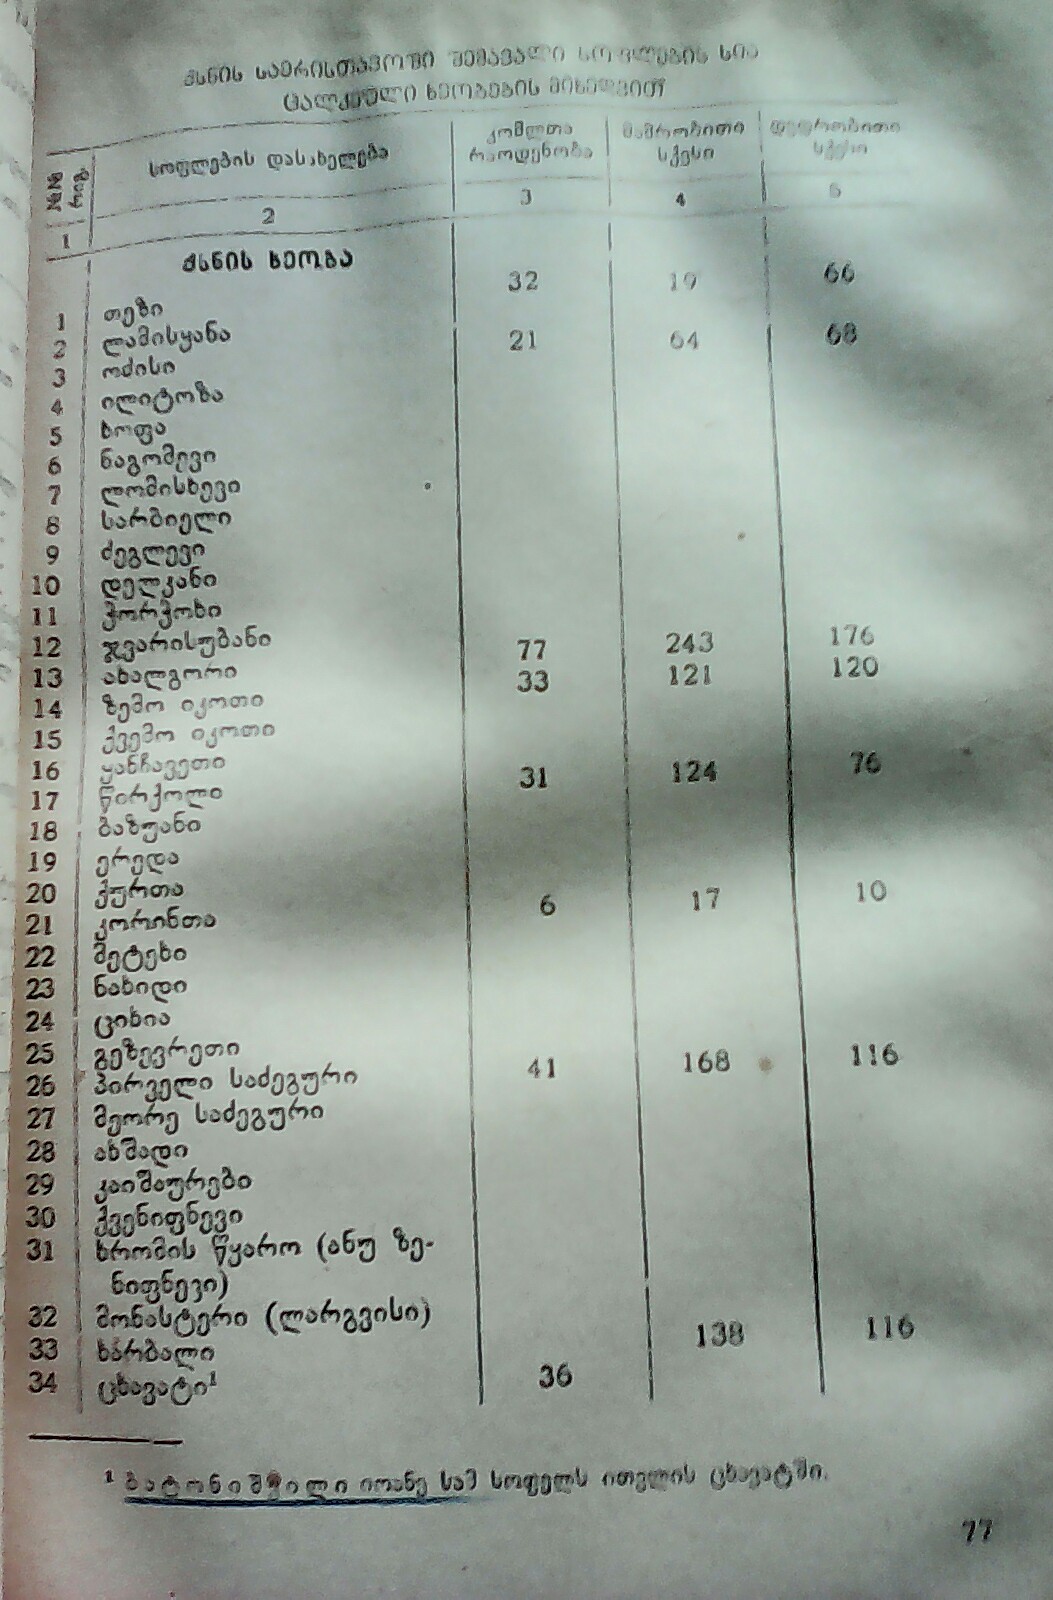 ქსნის საერისთავოში შემავალი სოფლების სია
ცალკეული ხეობების მიხედვით
№№ რიგ. სოფლების დასახელება კომლთა რაოდენობა მამრობითი სქესი დედრობითი სქესი
1 2 3 4 5
ქსნის ხეობა
1 თეზი 32 19 66
2 ლამისყანა 21 64 68
3 ოძისი
4 ილიტოზა
5 ხოფა
6 ნაგომევი
7 ლომისხევი
8 სარბიელი
9 ძეგლევი
10 დელკანი
11 ჭორჭოხი
12 ჯვარისუბანი 77 243 176
13 ახალგორი 33 121 120
14 ზემო იკოთი
15 ქვემო იკოთი
16 ყანჩავეთი 31 124 76
17 წირქოლი
18 ბაზუანი
19 ერედა
20 ქურთა 6 17 10
21 კორინთა
22 მეტეხი
23 ნახიდი
24 ციხია
25 გეზევრეთი 41 168 116
26 პირველი საძეგური
27 მეორე საძეგური
28 ახმადი
29 კაიშაურები
30 ქვენიფნევი
31 ხრომის წყარო (ანუ ზე-
ნიფნევი)
32 მონასტერი (ლარგვისი)
33 ხარბალი 138 116
34 ცხავატი¹ 36
¹ ბატონიშვილი იოანე სამ სოფელს ითვლის ცხავატში.
77